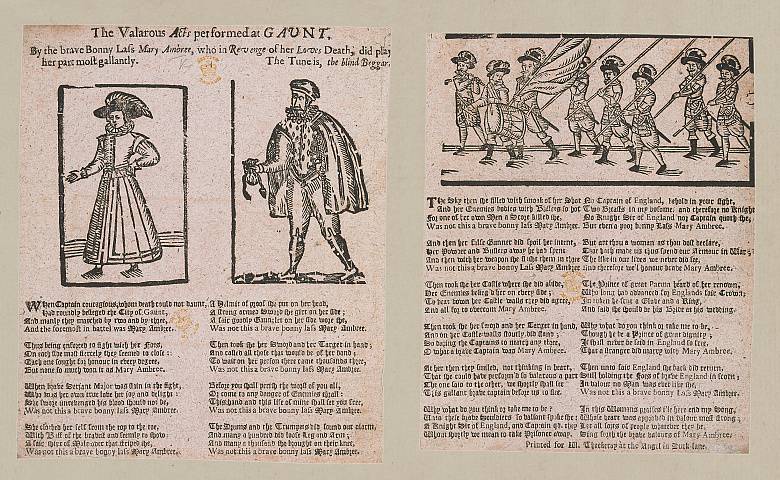 The Valarous Acts performed at GAUNT,
By the brave Bonny Lass Mary Ambree, who in Revenge of her Loves Death, did play
her part most gallantly. The Tune is, the blind Beggar.
When Captain couragious, whom death could not daunt,
Had roundly besieged the City of Gaunt,
And manly they marched by two and by three,
And the foremost in battel was Mary Ambree.
Thus being enforced to fight with her Foes,
On each side most fiercely they seemed to close:
Each one sought for honour in every degree,
But none so much won it as Mary Ambree.
When brave Serjant Major was slain in the fight,
Who was her own true love her joy and delight:
She swore his blood should not be,
Was not this a brave bonny lass Mary Ambree.
She clothed her self from the top to the toe,
With Buff of the bravest and seemly to show:
A fair shirt of Male over that striped she,
Was not this a brave bonny lass Mary Ambree.
A Helmet of proof she put on her head,
A strong armed Sword she girt on her side;
A fair goodly Gauntlet on her she wore she,
Was not this a brave bonny lass Mary Ambree.
Then took she her Sword and her Target in hand,
And called all those that would be of her band;
To wait on her person there came thousands three,
Was not this a brave bonny lass Mary Ambree.
Before you shall perish the worst of you all,
Or come to any danger of Enemies shall:
This hand and this life of mine shall set you free,
Was not this a brave bonny lass Mary Ambree.
The Drums and the Trumpets did sound out alarm,
And many a hundred did loose Leg and Arm;
And many a thousand she brought on their knee,
Was not this a brave bonny lass Mary Ambree.
The Sky then she filled with smoak of her Shot
And her Enemies bodies with Bullets so hot
For one of her own Men a Score killed she,
Was not this a brave bonny lass Mary Ambree.
And then her false Gunner did spoil her intent,
Her Powder and Bullets away he had spent,
And then with her weapon she slasht them in three
Was not this a brave bonny lass Mary Ambree.
Then took she the Castle where she did abide,
Her Enemies besieg'd her on every side;
To beat down her Castle walls they did agree,
And all for to overcom Mary Ambree.
Then took she her sword and her Target in hand,
And on her Castle walls stoutly did stand;
So daring the Captains to match any three,
O what a brave Captain was Mary Ambree.
At her then they smiled, not thinking in heart,
That she could have perform'd so valarous a part
The one said to the other, we shortly shall see
This gallant brave captain before us to flee.
Why what do you think or take me to be?
Unto these brave Souldiers so valiant spake she:
A Knight Sir of England, and Captain qd. they
Whom shortly we mean to take Prisoner away.
No Captain of England, behold in your sight,
Two Breasts in my bosome, and therefore no Knight
No Knight Sir of England nor Captain quoth she,
But even a poor bonny Lass Mary Ambree.
But art thou a woman as thou dost declare,
That hath made us thus spend our Armour in War;
The like in our lives we never did see,
And therefore we'l honour brave Mary Ambree.
The Prince of great Parma heard of her renown,
Who long had advanced for Englands fair Crown;
In token he sent a Glove and a Ring,
And said she should be his Bride at his wedding.
Why what do you think or take me to be,
Though he be a Prince of great dignity;
It shall never be said in England so free,
That a stranger did marry with Mary Ambree.
Then unto fair England she back did return,
Still holding the Foes of brave England in scorn;
In valour no Man was ever like she,
Was not this a brave bonny lass Mary Ambree.
In this Womans praises ile here end my Song,
Whose heart was approved in valour most strong;
Let all sorts of people whatever they be,
Sing forth the brave valours of Mary Ambree.
Printed for W. Thackeray at the Angel in Duck-lane.